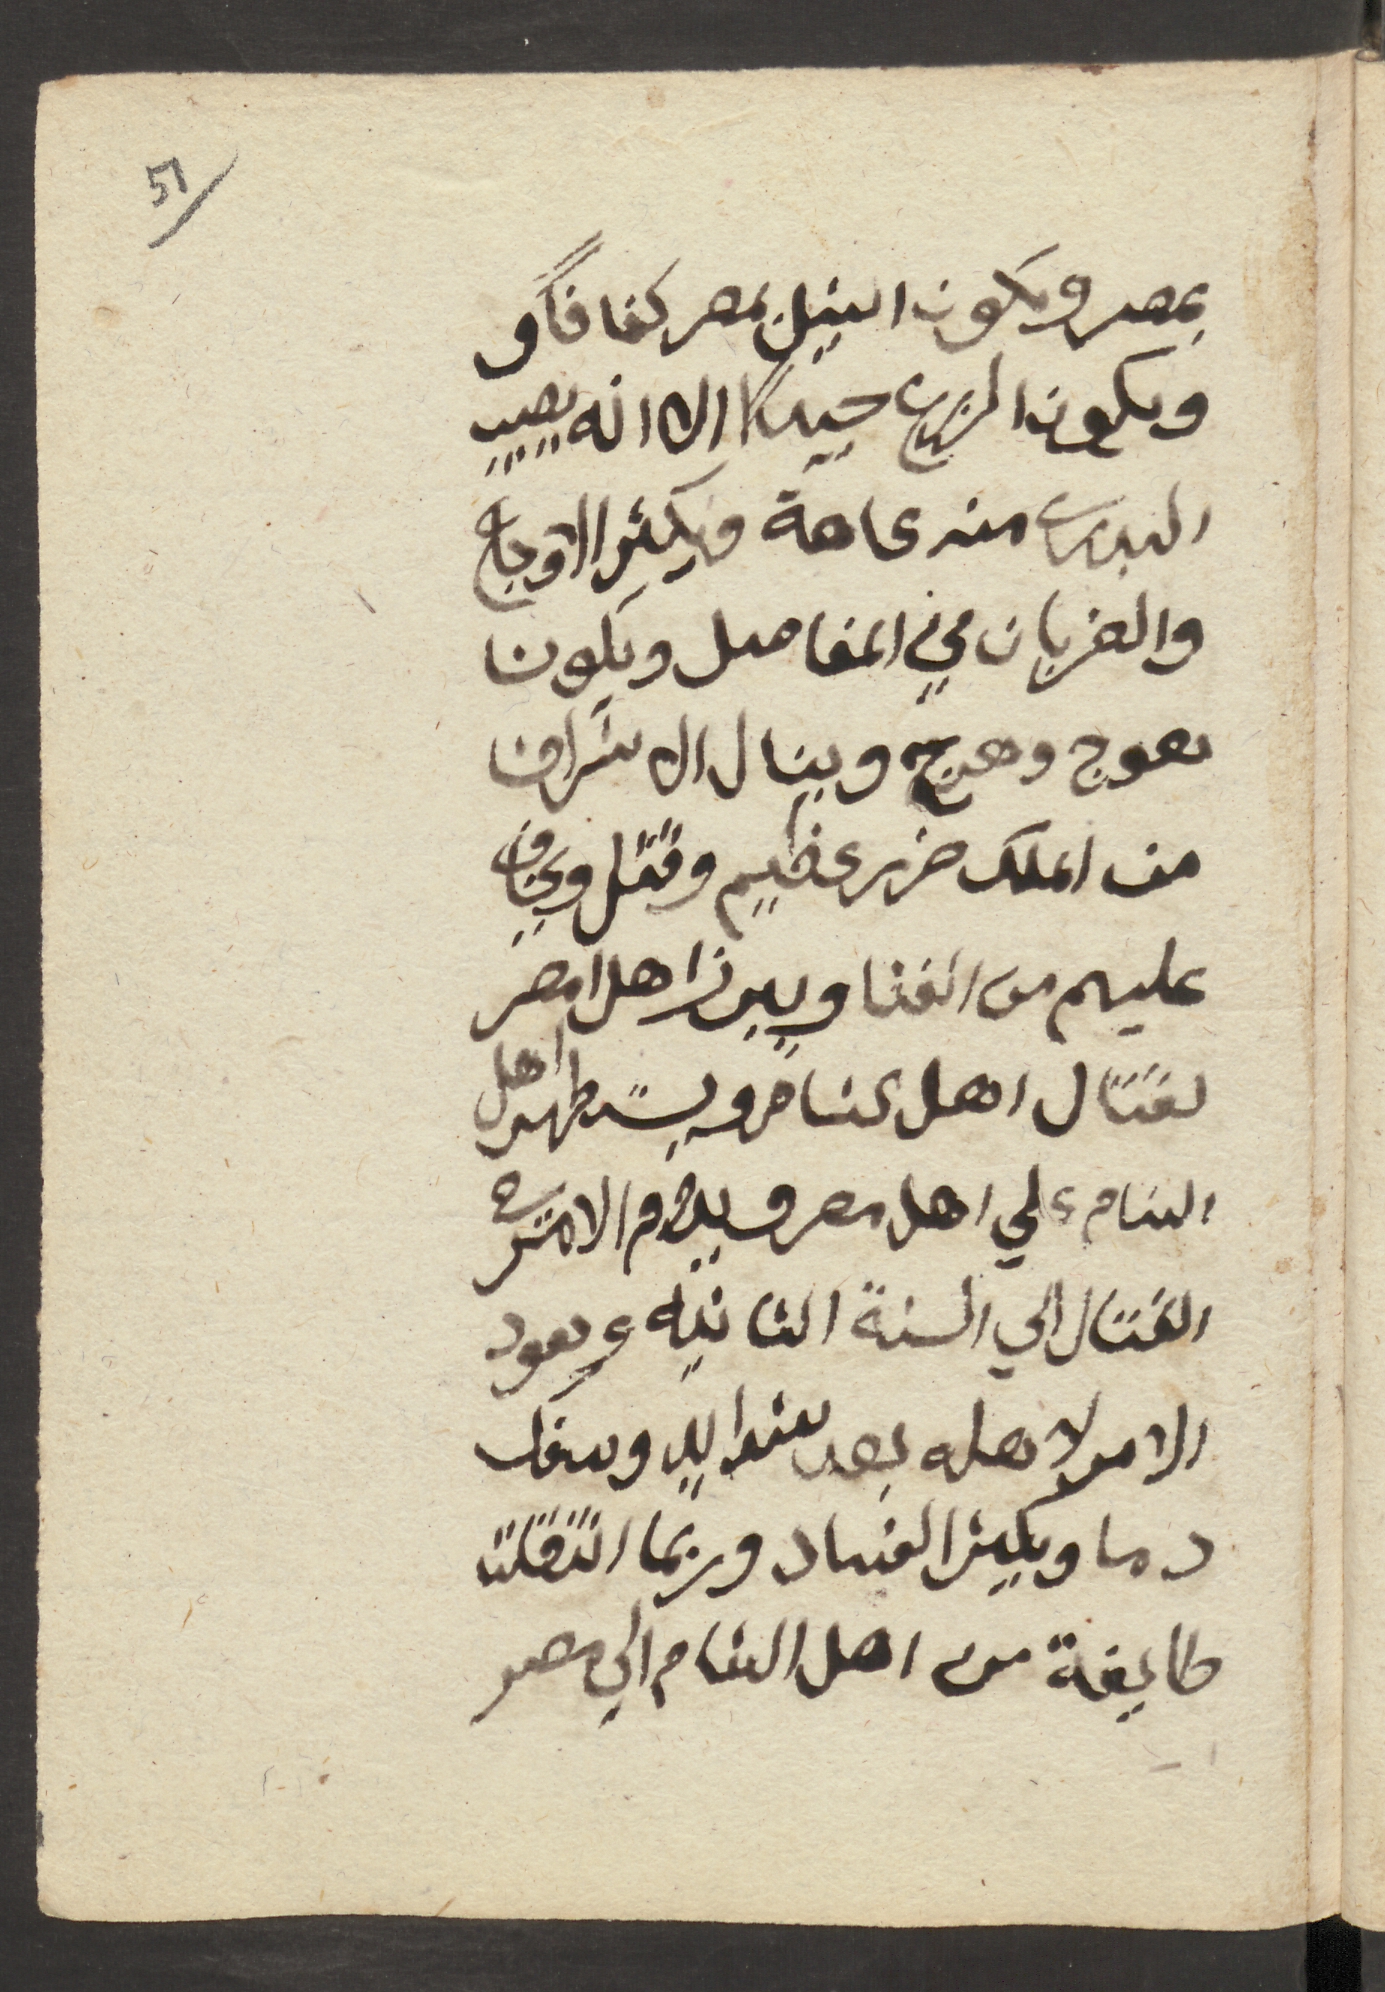 51
بمصر ويكون النيل بمصر كفافا و
ويكون الزرع جيدا الا انه يصيب
البدري منه عاهة ويكثر الاوجاع
والضربان في المفاصل ويكون
هوج وهيج وينال الاشراف
من الملك ضرر عظيم وقتل ويخاف
عليهم من الفنا ويبرز اهل امصر
لقتال اهل الشام ويستظهر اهل
الشام علي اهل مصر ويلازم الامر في
القتال الي السنة الثانيه ويعود
الامر لاهله بعد شدايد وسفك
دما ويكثر الفساد وربما انتقلت
طايفة من اهل الشام الي مصر